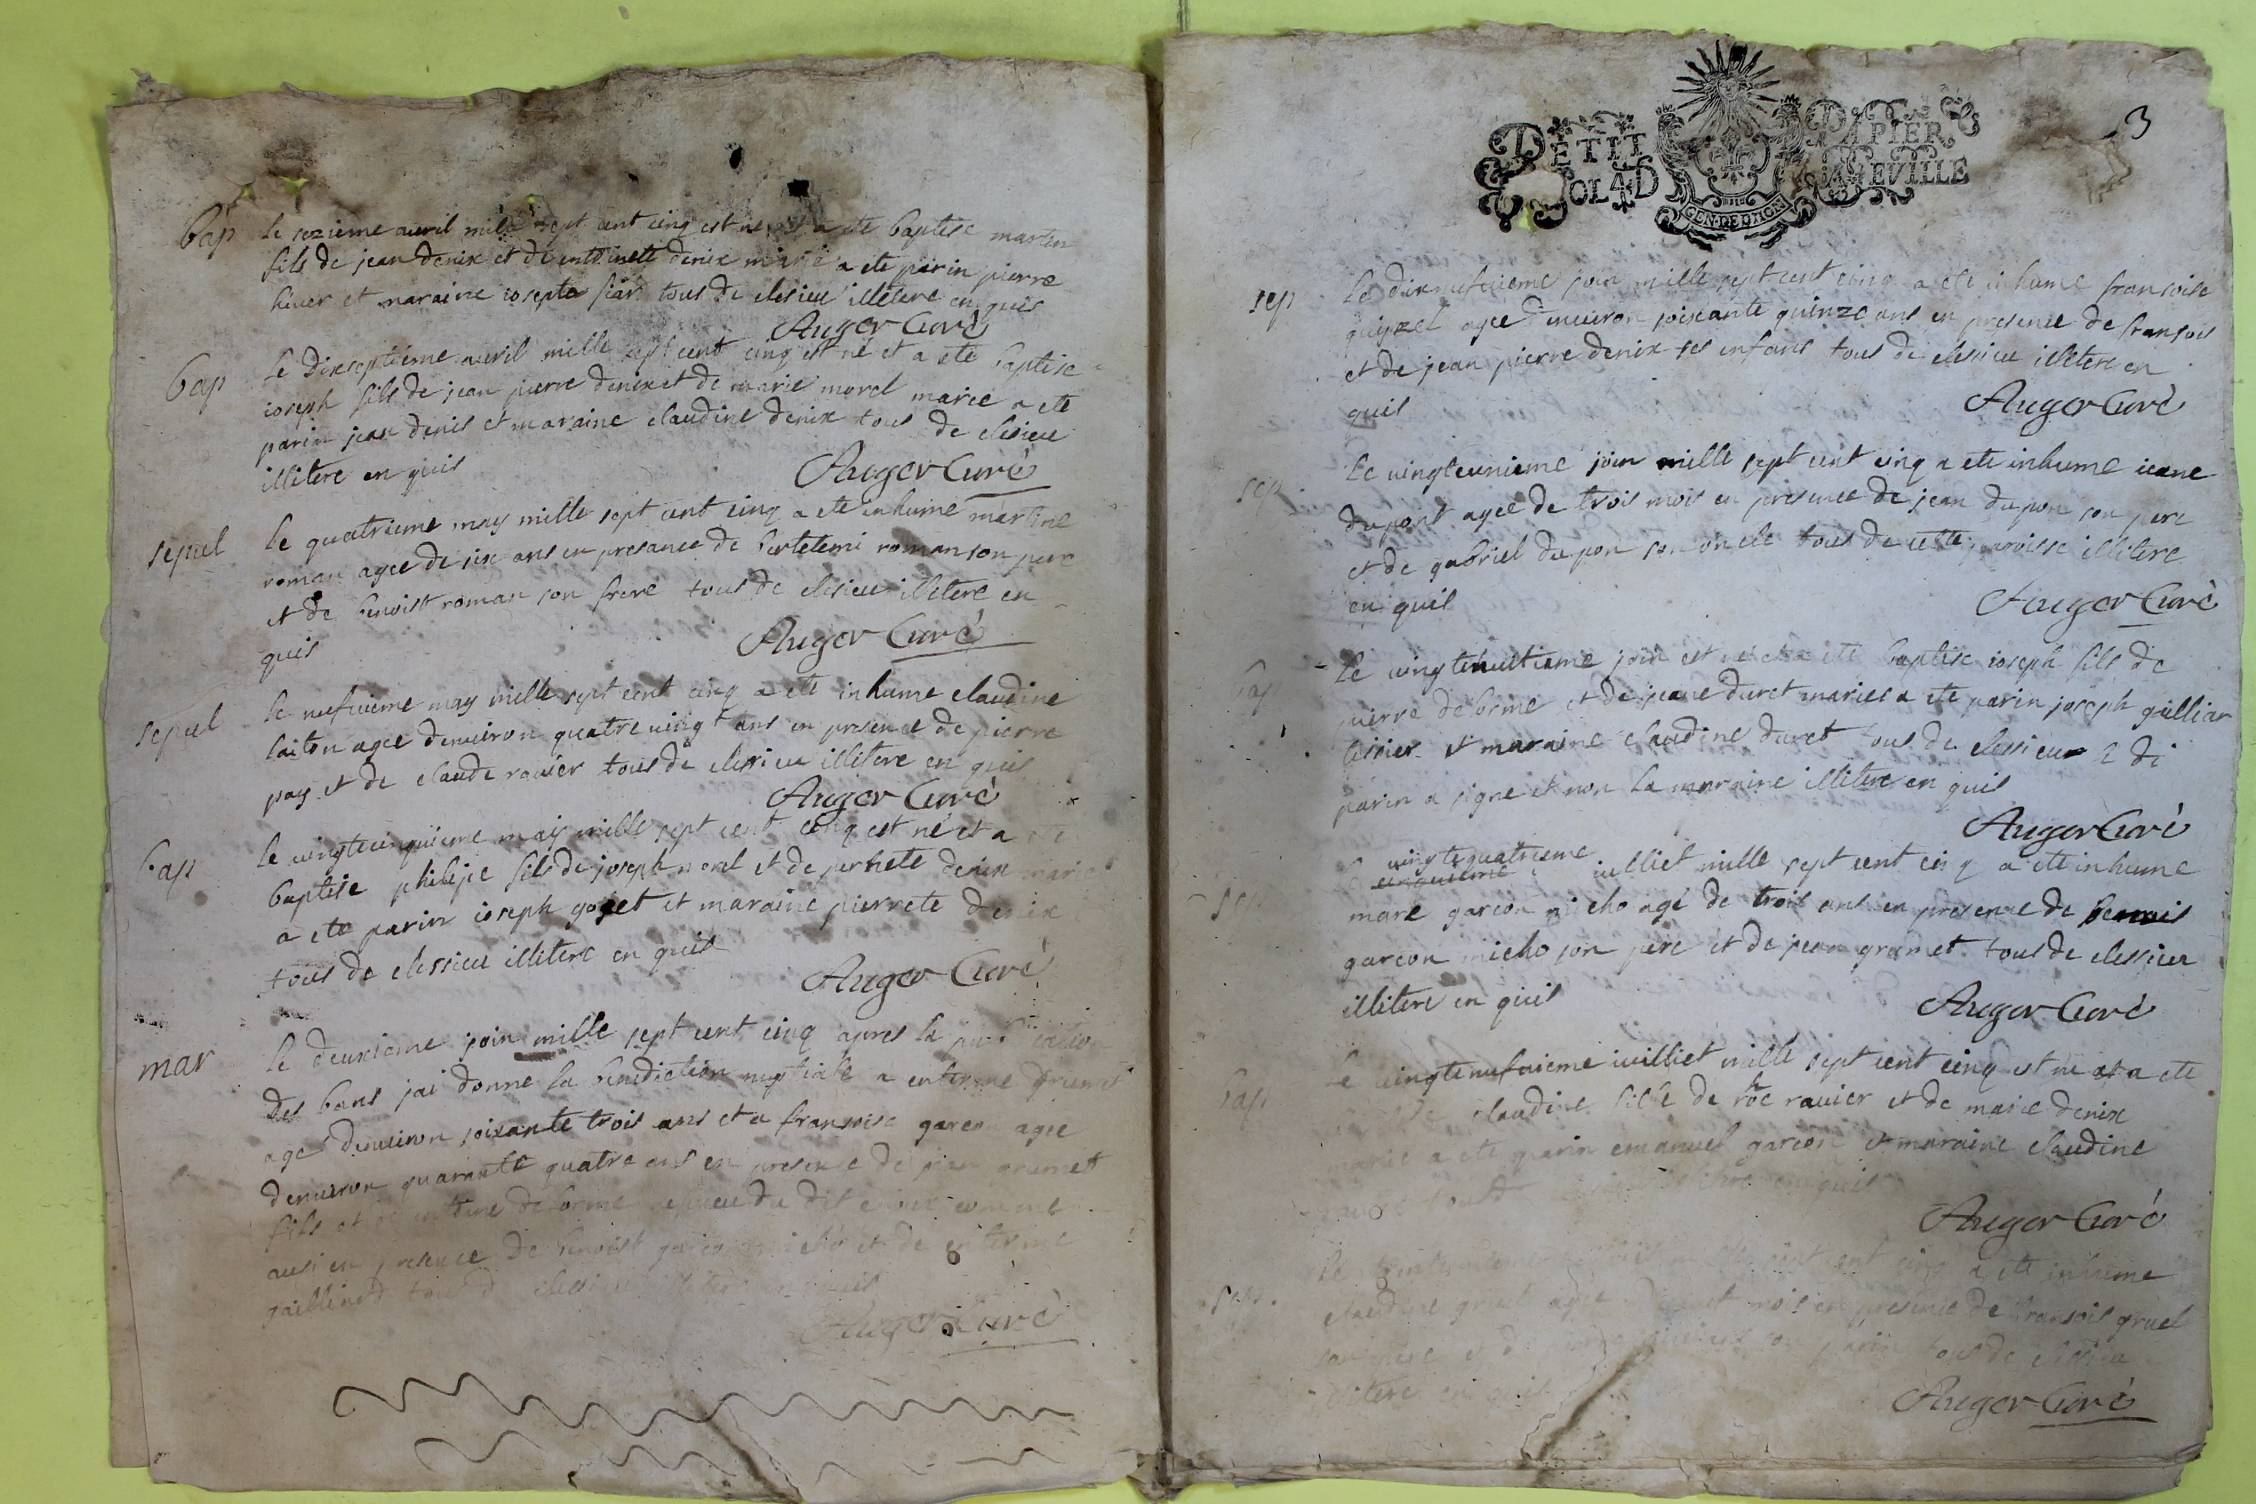 bap le sezieme avril mille sept cent cinq est ne et a ete baptise martin
fils de jean denix et de entoinete denix marie a ete parin pierre
hiver et maraine iosepte siar tous de clesieu illitere enquis
Auger Curé
bap le dixseptieme avril mille sept cent cinq est né et a ete baptise
ioseph fils de jean pierre denix et de marie morel marie a ete
parin jean denis et maraine claudine denix tous de clesieu
illitere en quis Auger Curé
sepul le quatrieme may mille sept cent cinq a ete inhume martine
roman agee de six ans en presance de bertelemi roman son pere
et de benoist roman son frere tous de clesieu illitere en
quis Auger Curé
sepul le nufvieme may mille sept cent cinq a ete inhume claudine
laiton agee denviron quatrevingt ans en presence de pierre
pay et de claude ravier tous de clessieu illitere en quis
Auger Curé
bap le vingtecinquieme may mille sept cent cinq est né et a ete
baptise philipe fils de joseph morel et de pernete denix marie
a ete parin ioseph goget et maraine pierrete denix
tous de clessieu illitere en quis
Auger Curé
mar le deuxieme join mille sept cent cinq apres la publication
des bans jai donne la benediction nuptiale a entoine grumet
agé denviron soixante trois ans et a fransoise garcon agee
denviron quarante quatre ans en presence de jean grumet
fils et de entoine delorme du dit epoux comme
ausi en presence de benoist garcon micho et de entoine
tous de clessieu illitere en quis
Auger Curé
PETIT PAPIER 3
SOL 4 D LA FEVILLE
GEN. DE DIION
sep le dixnufvieme join mille sept cent cinq a ete inhume fransoise
agee denviron soixante quinze ans en presence de fransois
et de jean pierre denix ses enfans tous de clessieu illitere en
quis Auger Curé
sep le vingteunieme join mille sept cent cinq a ete inhume ieane
dupont agee de trois mois en presence de jean dupon son pere
et de gabriel dupon son oncle tous de cette paroisse illitere
en quis Auger Curé
bap le vingtehuitieme join est né et a ete baptise ioseph fils de
pierre delorme et de jeane duret maries a ete parin joseph gulliar
tissier et maraine claudine duret tous de clessieu le di
parin a signe et non la maraine illitere en quis
Auger Curé
vingtequatrieme
sep le cinquieme iulliet mille sept cent cinq a ete inhume
marc garcon micho agé de trois ans en presence de benois
garcon micho son pere et de jean grumet tous de clessieu
illitere en quis Auger Curé
bap le vingtenufvieme iulliet mille sept cent cinq est né et a ete
claudine fille de roc ravier et de marie denix
marie a ete parin emanuel garcon et maraine claudine
tous de
Auger Curé
sep le cent cinq a ete inhume
claudine gruel agee mois en presence de fransois gruel
son pere et de son parin tous de clessieu
illitere en quis Auger Curé